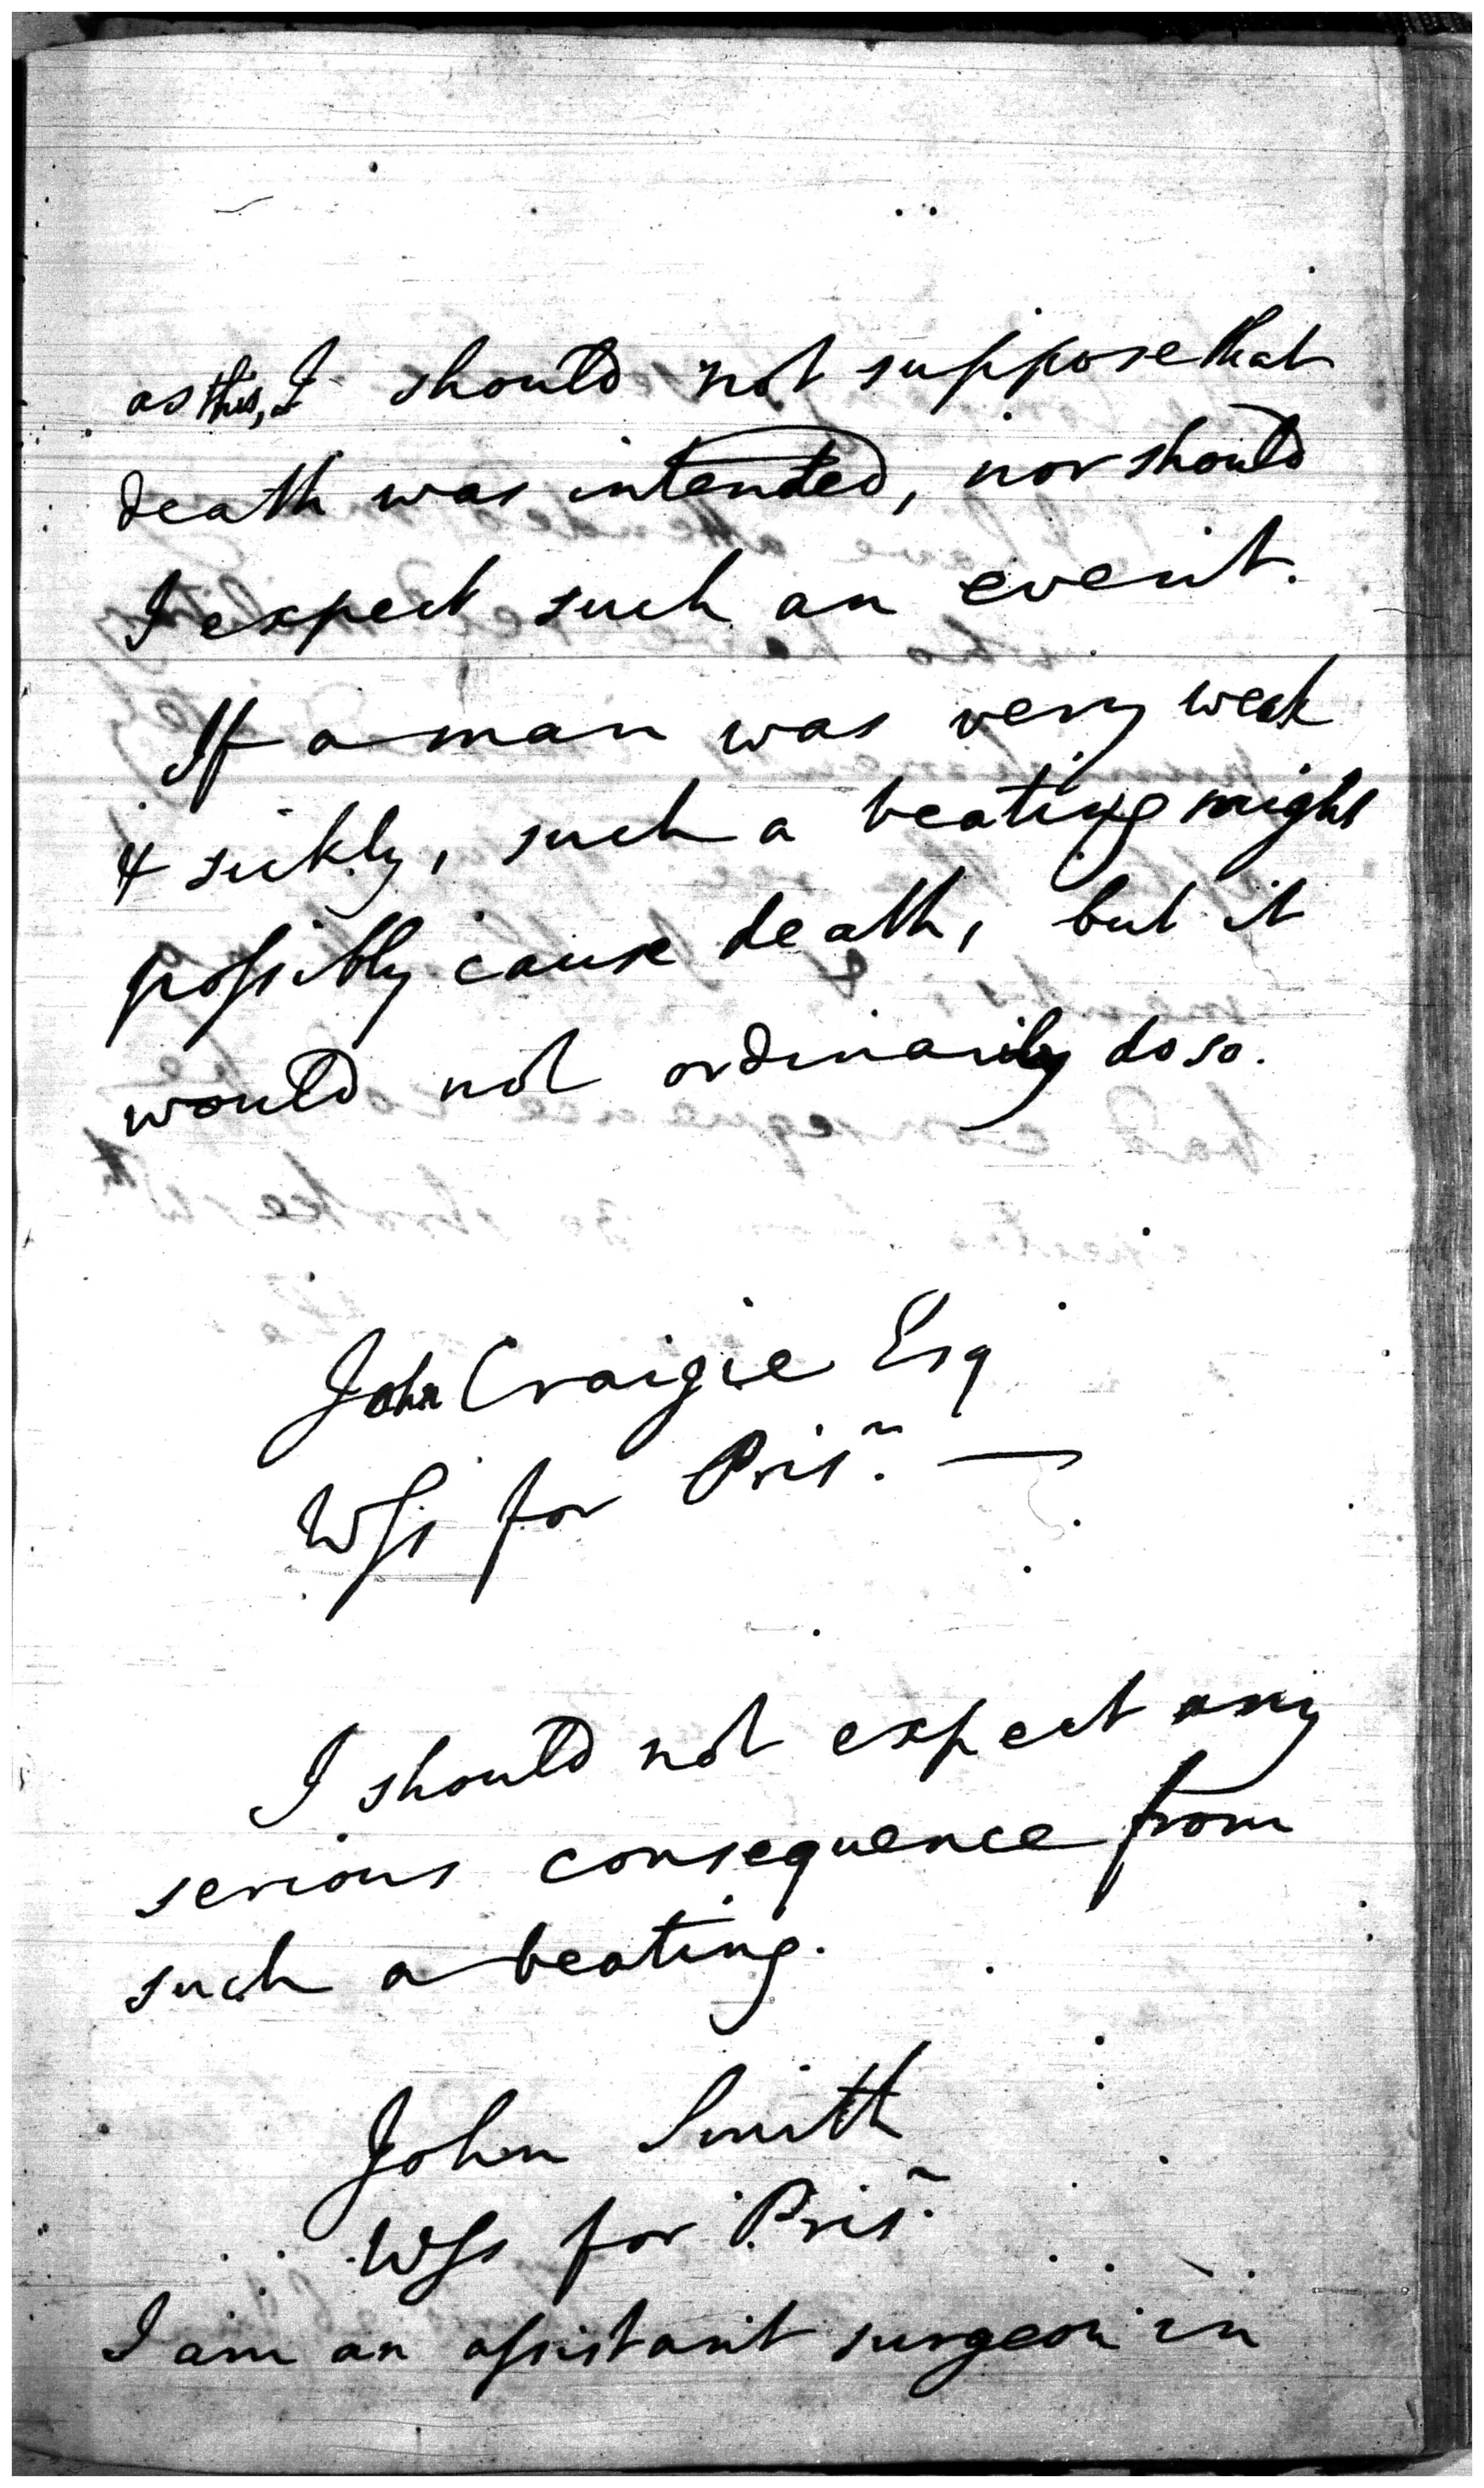 as this, I should not suppose that
death was intended, nor should
I expect such an event.
If a man was very weak
& sickly, such a beating might
possibly cause death, but it
would not ordinarily do so.
John Craigie Esq
Wss for Prisn. —
I should not expect any
serious consequence from
such a beating.
John Smith
Wss for Prisn.
I am an assistant surgeon in